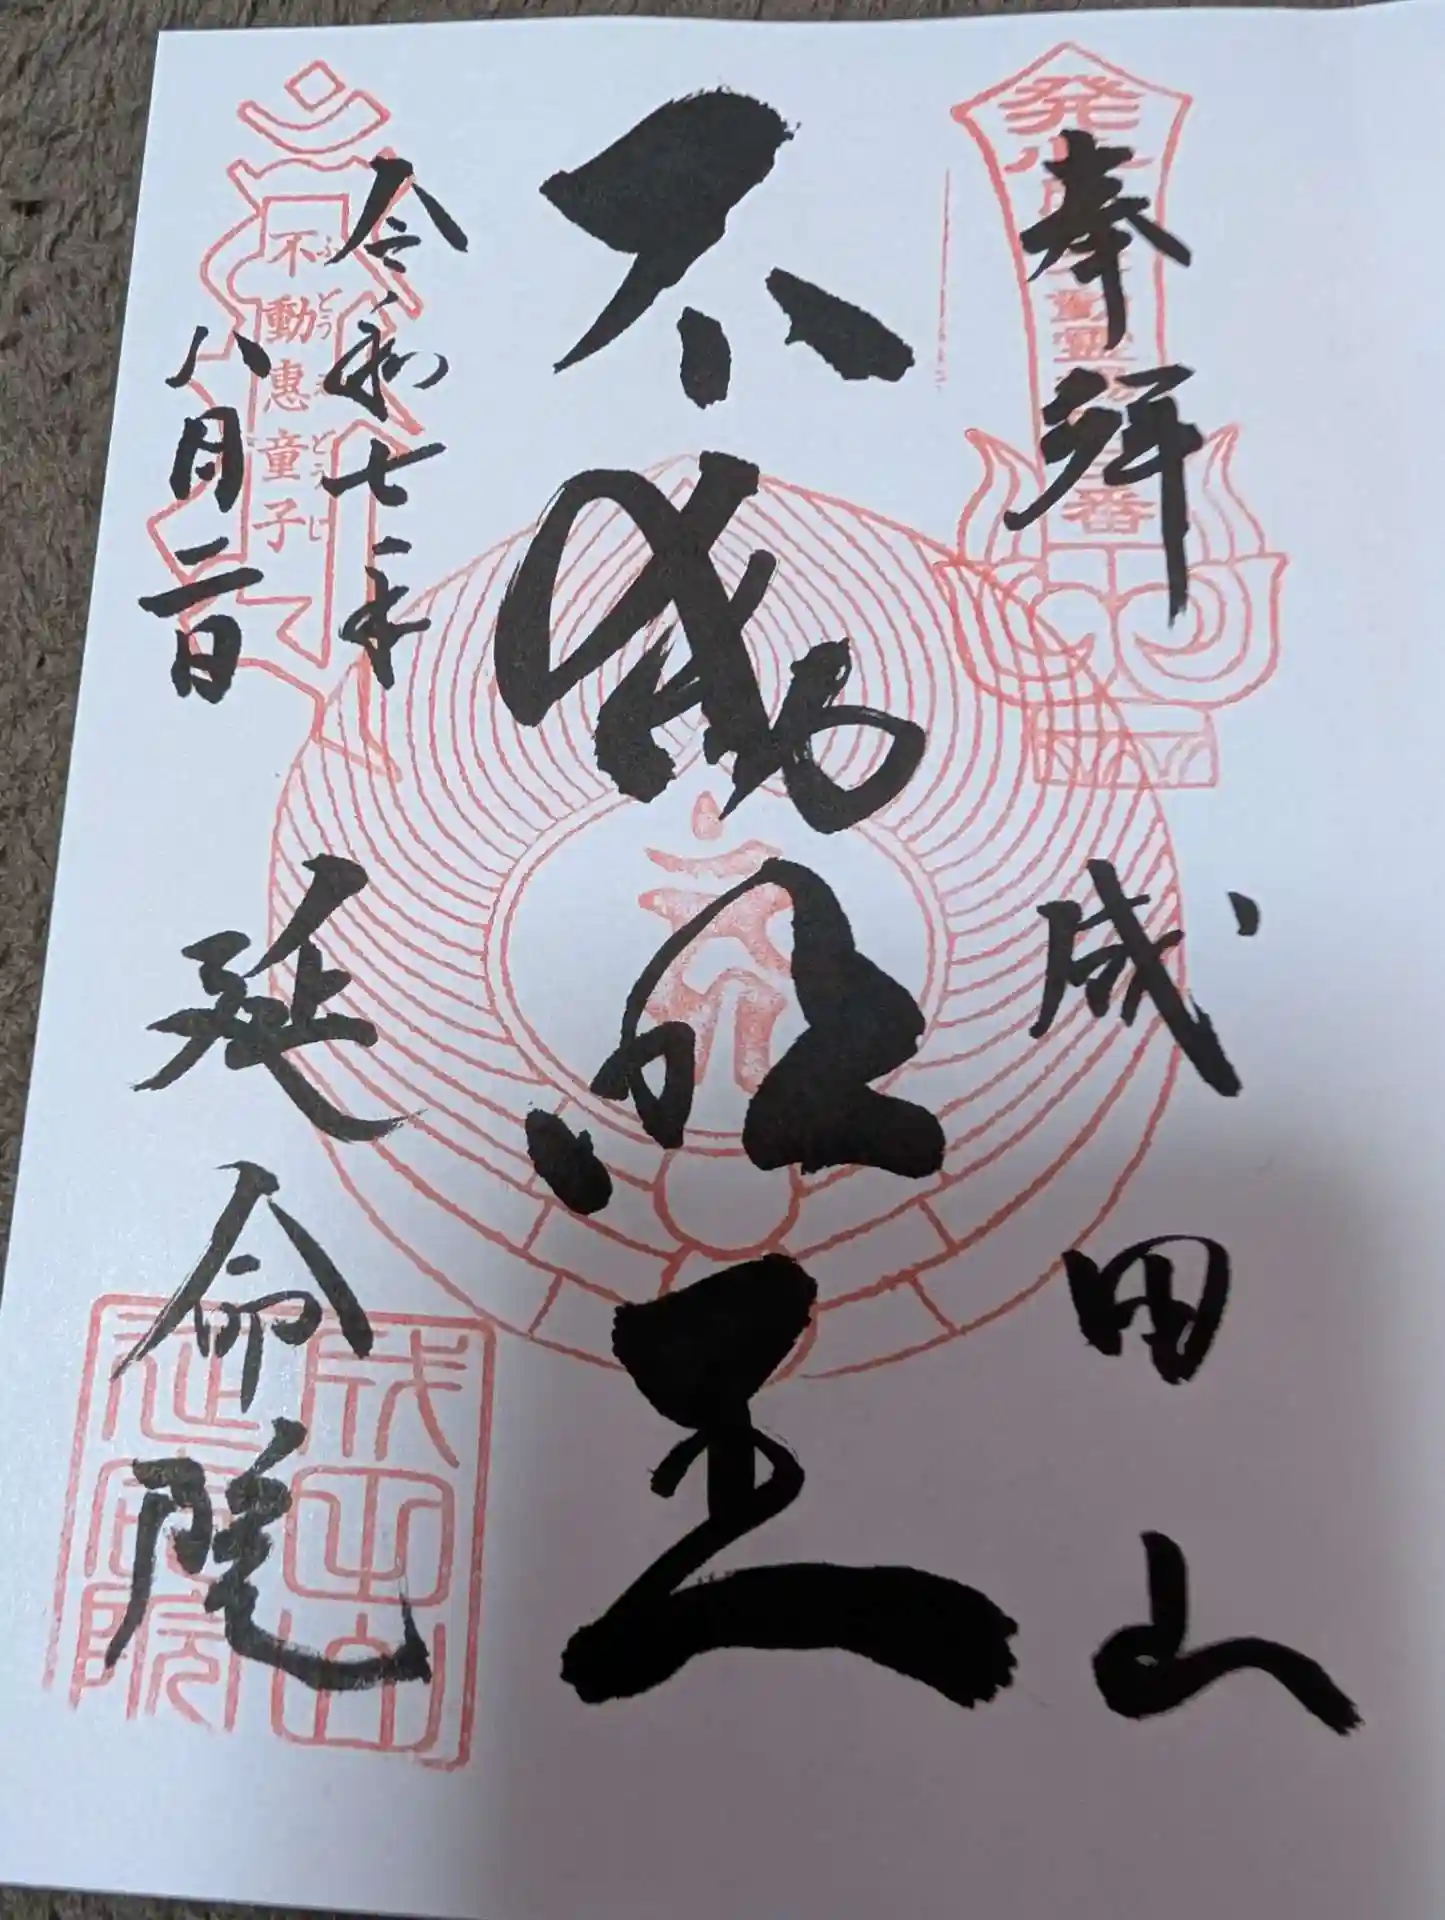 奉拝
成田山
不動明王
令和七年
八月二日
延命院
不動惠童子
ふどう
どうじ
成田山
延命院